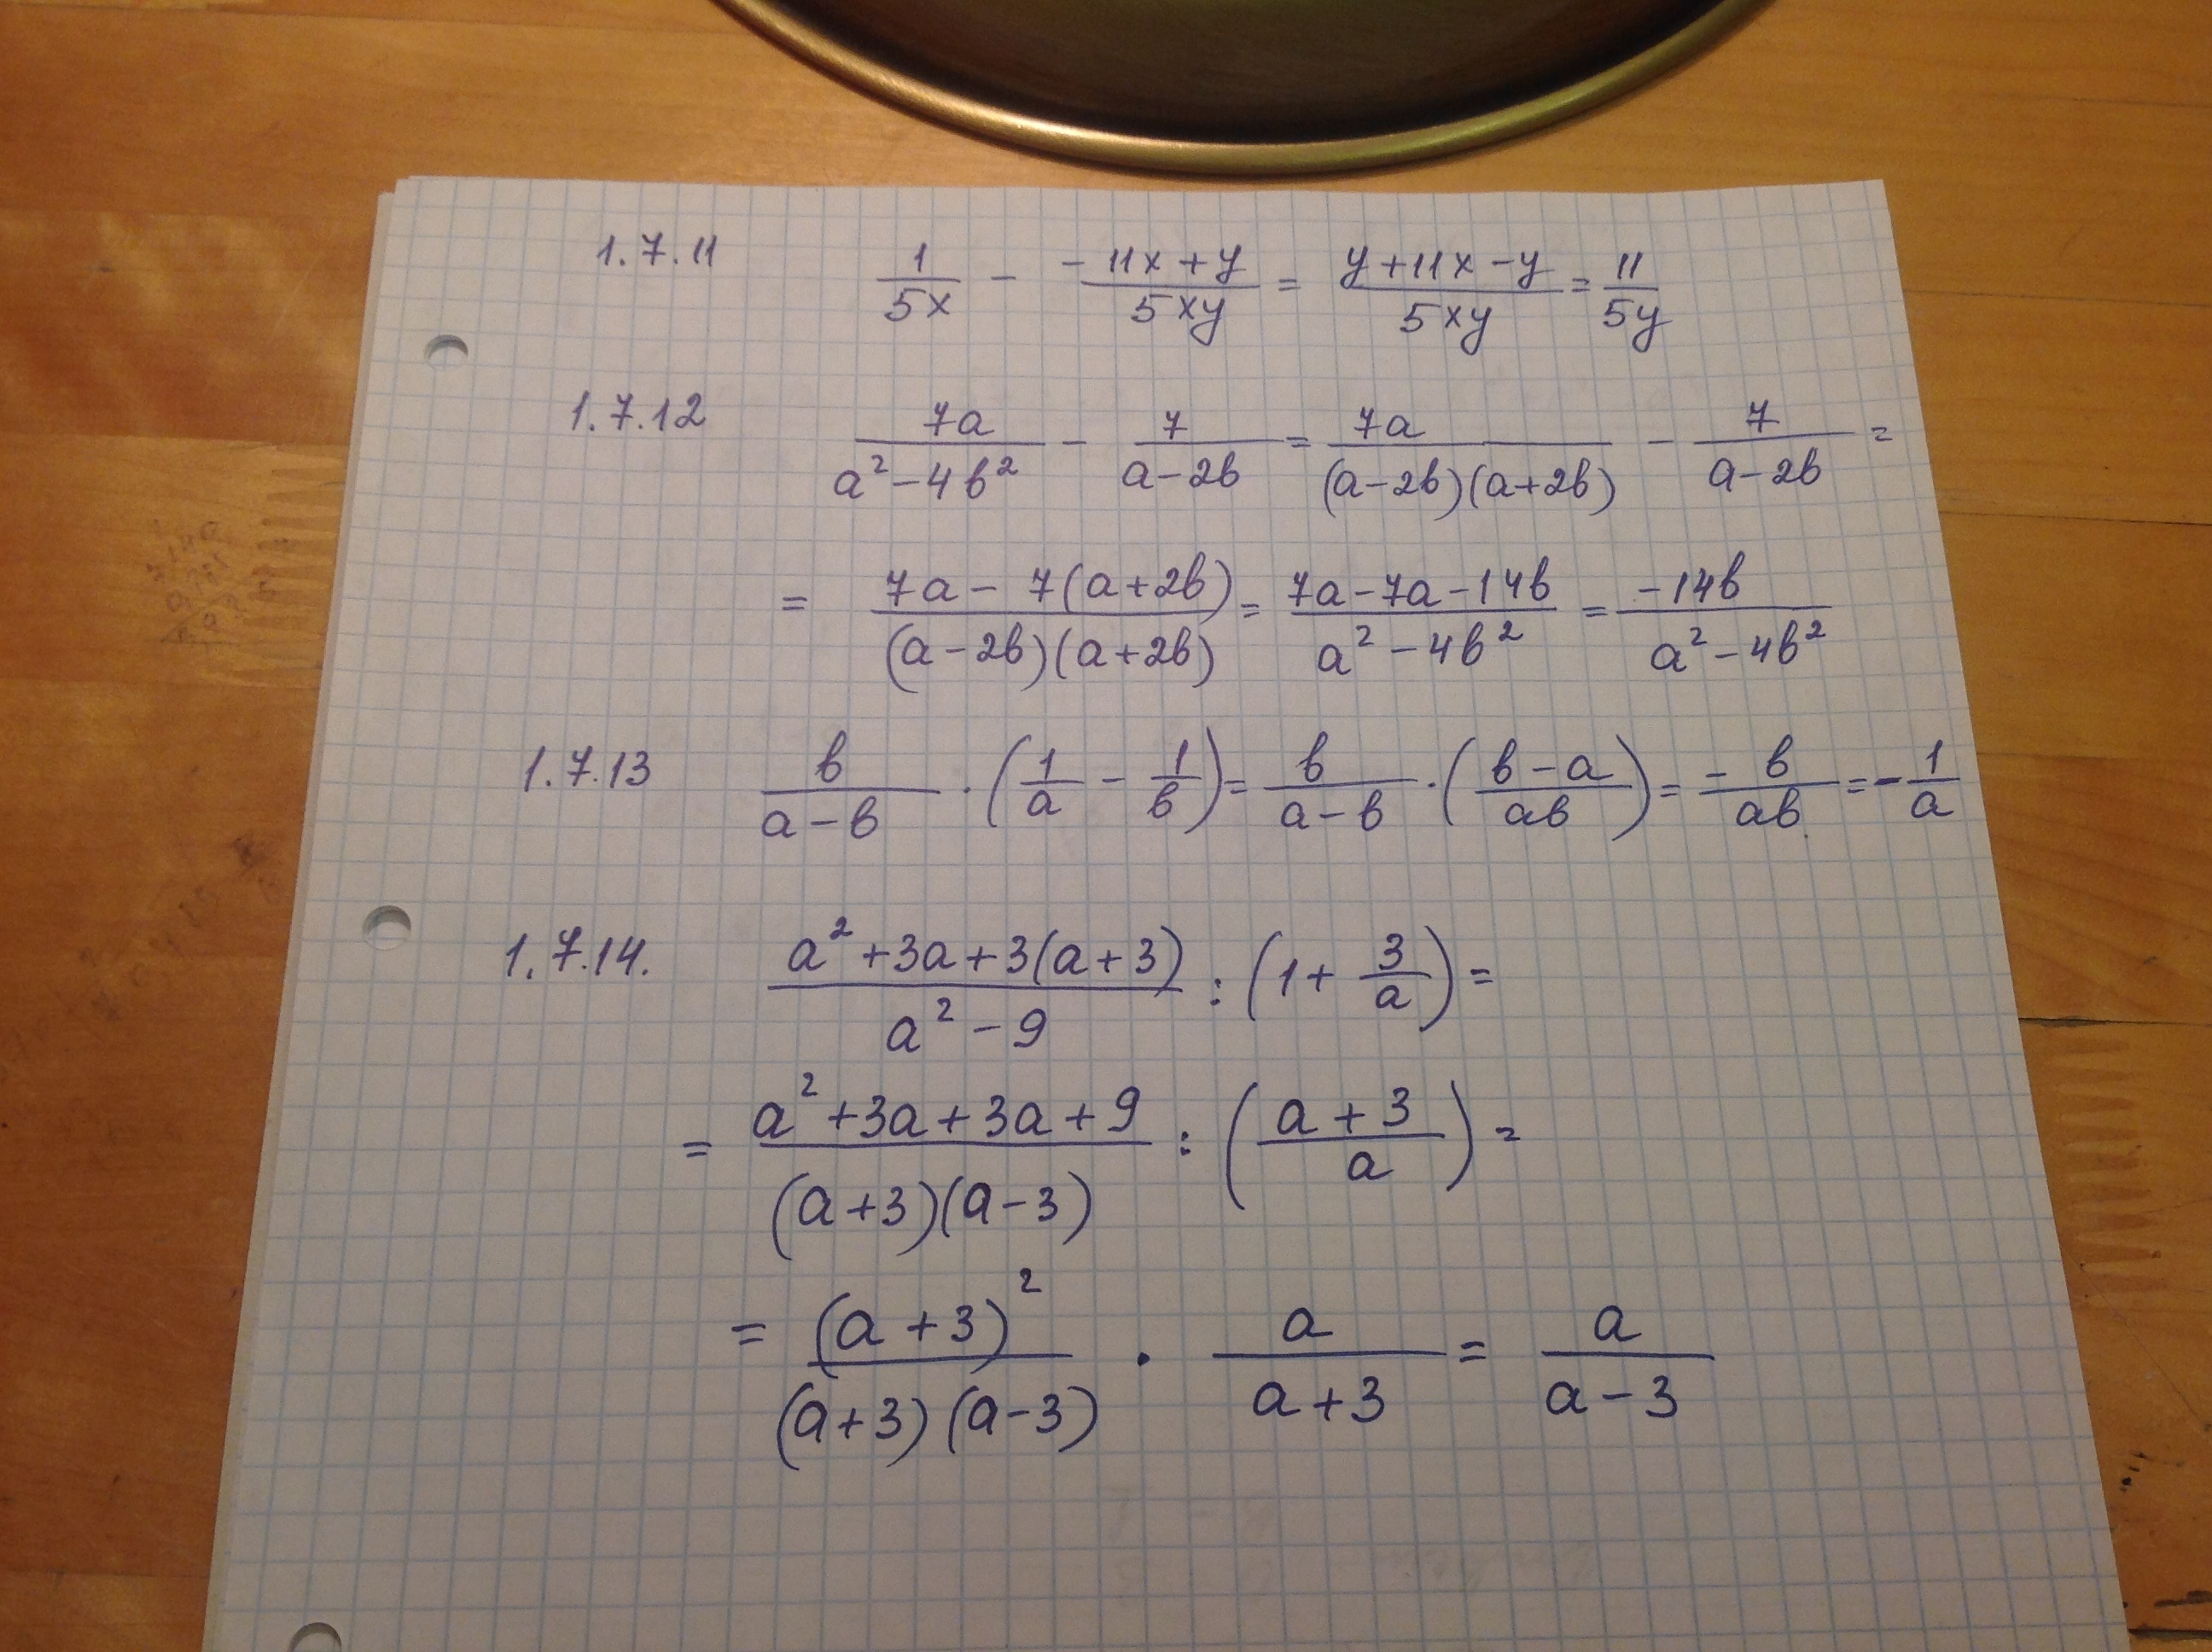 1.7.11 1/(5x) - (-11x+y)/(5xy) = (y+11x-y)/(5xy) = 11/(5y)
1.7.12 7a/(a²-4b²) - 7/(a-2b) = 7a/((a-2b)(a+2b)) - 7/(a-2b) =
= (7a-7(a+2b))/((a-2b)(a+2b)) = (7a-7a-14b)/(a²-4b²) = (-14b)/(a²-4b²)
1.7.13 b/(a-b) · (1/a - 1/b) = b/(a-b) · ((b-a)/(ab)) = -b/(ab) = -1/a
1.7.14. (a²+3a+3(a+3))/(a²-9) : (1+3/a) =
= (a²+3a+3a+9)/((a+3)(a-3)) : ((a+3)/a) =
= (a+3)²/((a+3)(a-3)) · a/(a+3) = a/(a-3)